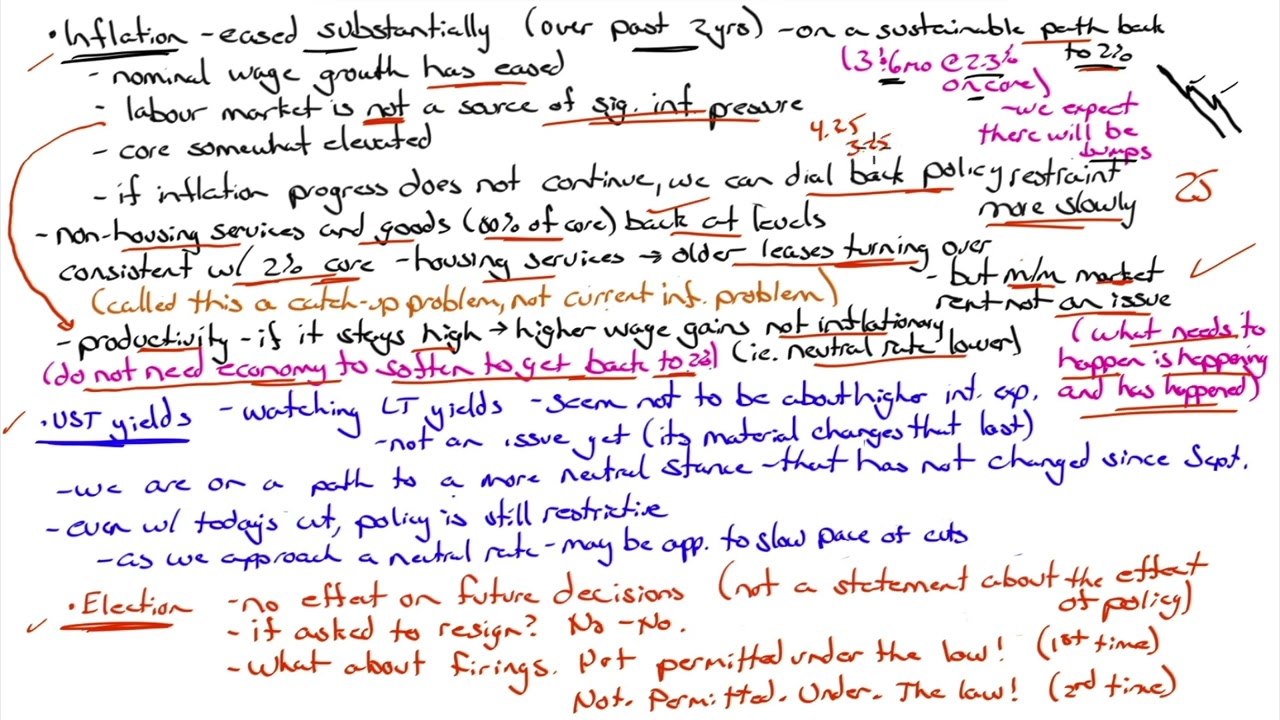 • Inflation - eased substantially (over past 2yrs) - on a sustainable path back to 2%
(3 & 6mo @ 2.3% on core)
- we expect there will be bumps
- nominal wage growth has eased
- labour market is not a source of sig. inf pressure
- core somewhat elevated
4.25
- if inflation progress does not continue, we can dial back policy restraint more slowly
25
- non-housing services and goods (80% of core) back at levels
consistent w/ 2% core - housing services → older leases turning over
- but m/m market rent not an issue
(called this a catch-up problem, not current inf. problem)
- productivity - if it stays high → higher wage gains not inflationary
(ie. neutral rate lower)
(do not need economy to soften to get back to 2%)
(what needs to happen is happening and has happened)
• UST yields - watching LT yields - seem not to be about higher int. exp.
- not an issue yet (its material changes that last)
- we are on a path to a more neutral stance - that has not changed since Sept.
- even w/ today's cut, policy is still restrictive
- as we approach a neutral rate - may be app. to slow pace of cuts
• Election - no effect on future decisions (not a statement about the effect of policy)
- if asked to resign? No - No.
- What about firings. Not permitted under the law! (1st time)
Not. Permitted. Under. The law! (2nd time)